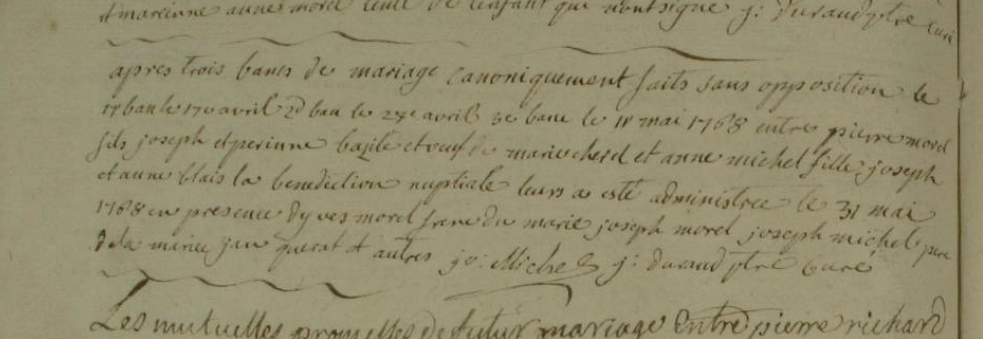 et marcinne anne morel tente de lenfant qui nont signe j: durand ptre curé
apres trois bancs de mariage canoniquement faits sans opposition le
1er ban le 17e avril 2d ban le 24e avril 3e banc le 1r mai 1768 entre pierre morel
fils joseph et perinne bazile et veuf de marie cherel et anne michel fille joseph
et anne blais la benediction nuptiale leurs a esté administree le 31 mai
1768 en presence dyves morel frere du marié joseph morel joseph michel pere
de la mariee jan querat et autres jo: Michel j: durand ptre curé
Les mutuelles promesses de futur mariage Entre pierre richard